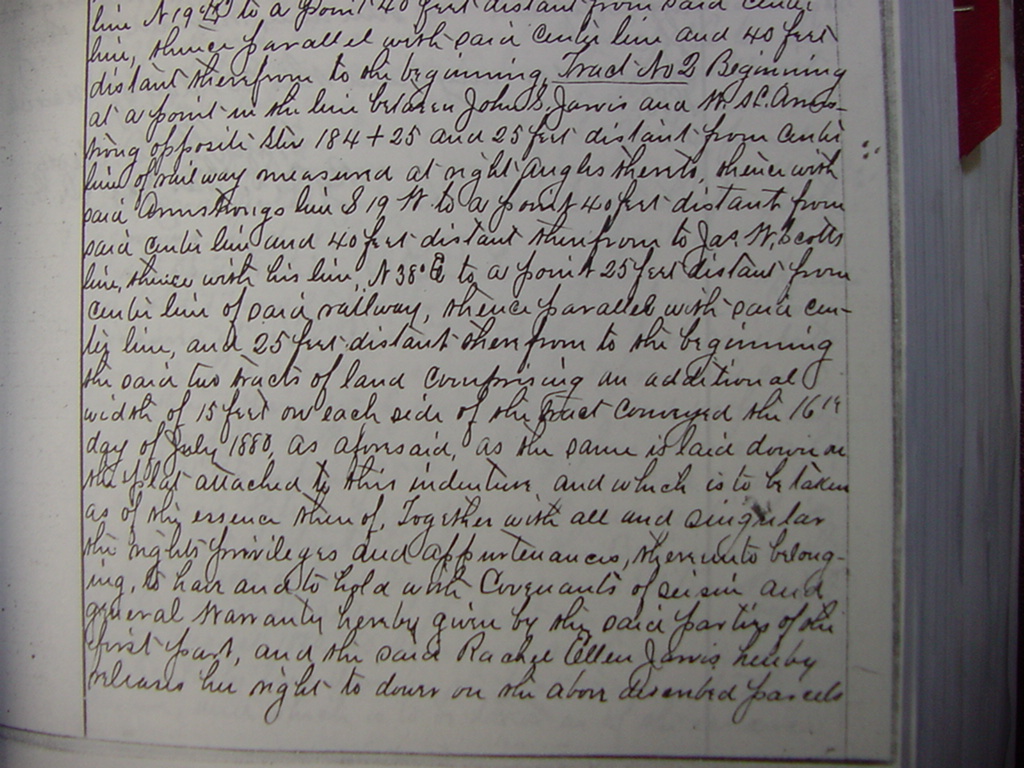 line N 19° E to a point 40 feet distant from said center
line, thence parallel with said center line and 40 feet
distant therefrom to the beginning, Tract No 2 Beginning
at a point in the line between John S. Jarvis and W. St. C. Arms-
trong opposite Stn 184 + 25 and 25 feet distant from center
line of railway measured at right angles thereto, thence with
said Armstrongs line S 19 W to a point 40 feet distant from
said center line and 40 feet distant therefrom to Jas. W. Scotts
line, thence with his line, N 38° E to a point 25 feet distant from
center line of said railway, thence parallel with said cen-
ter line, and 25 feet distant therefrom to the beginning
the said two tracts of land comprising an additional
width of 15 feet on each side of the tract conveyed the 16th
day of July 1880, as aforesaid, as the same is laid down on
the plat attached to this indenture and which is to be taken
as of the essence thereof, Together with all and singular
the rights privileges and appurtenances, thereunto belong-
ing, to have and to hold with Covenants of seisin and
general Warranty hereby given by the said parties of the
first part, and the said Rachel Ellen Jarvis hereby
releases her right to dower on the above described parcels